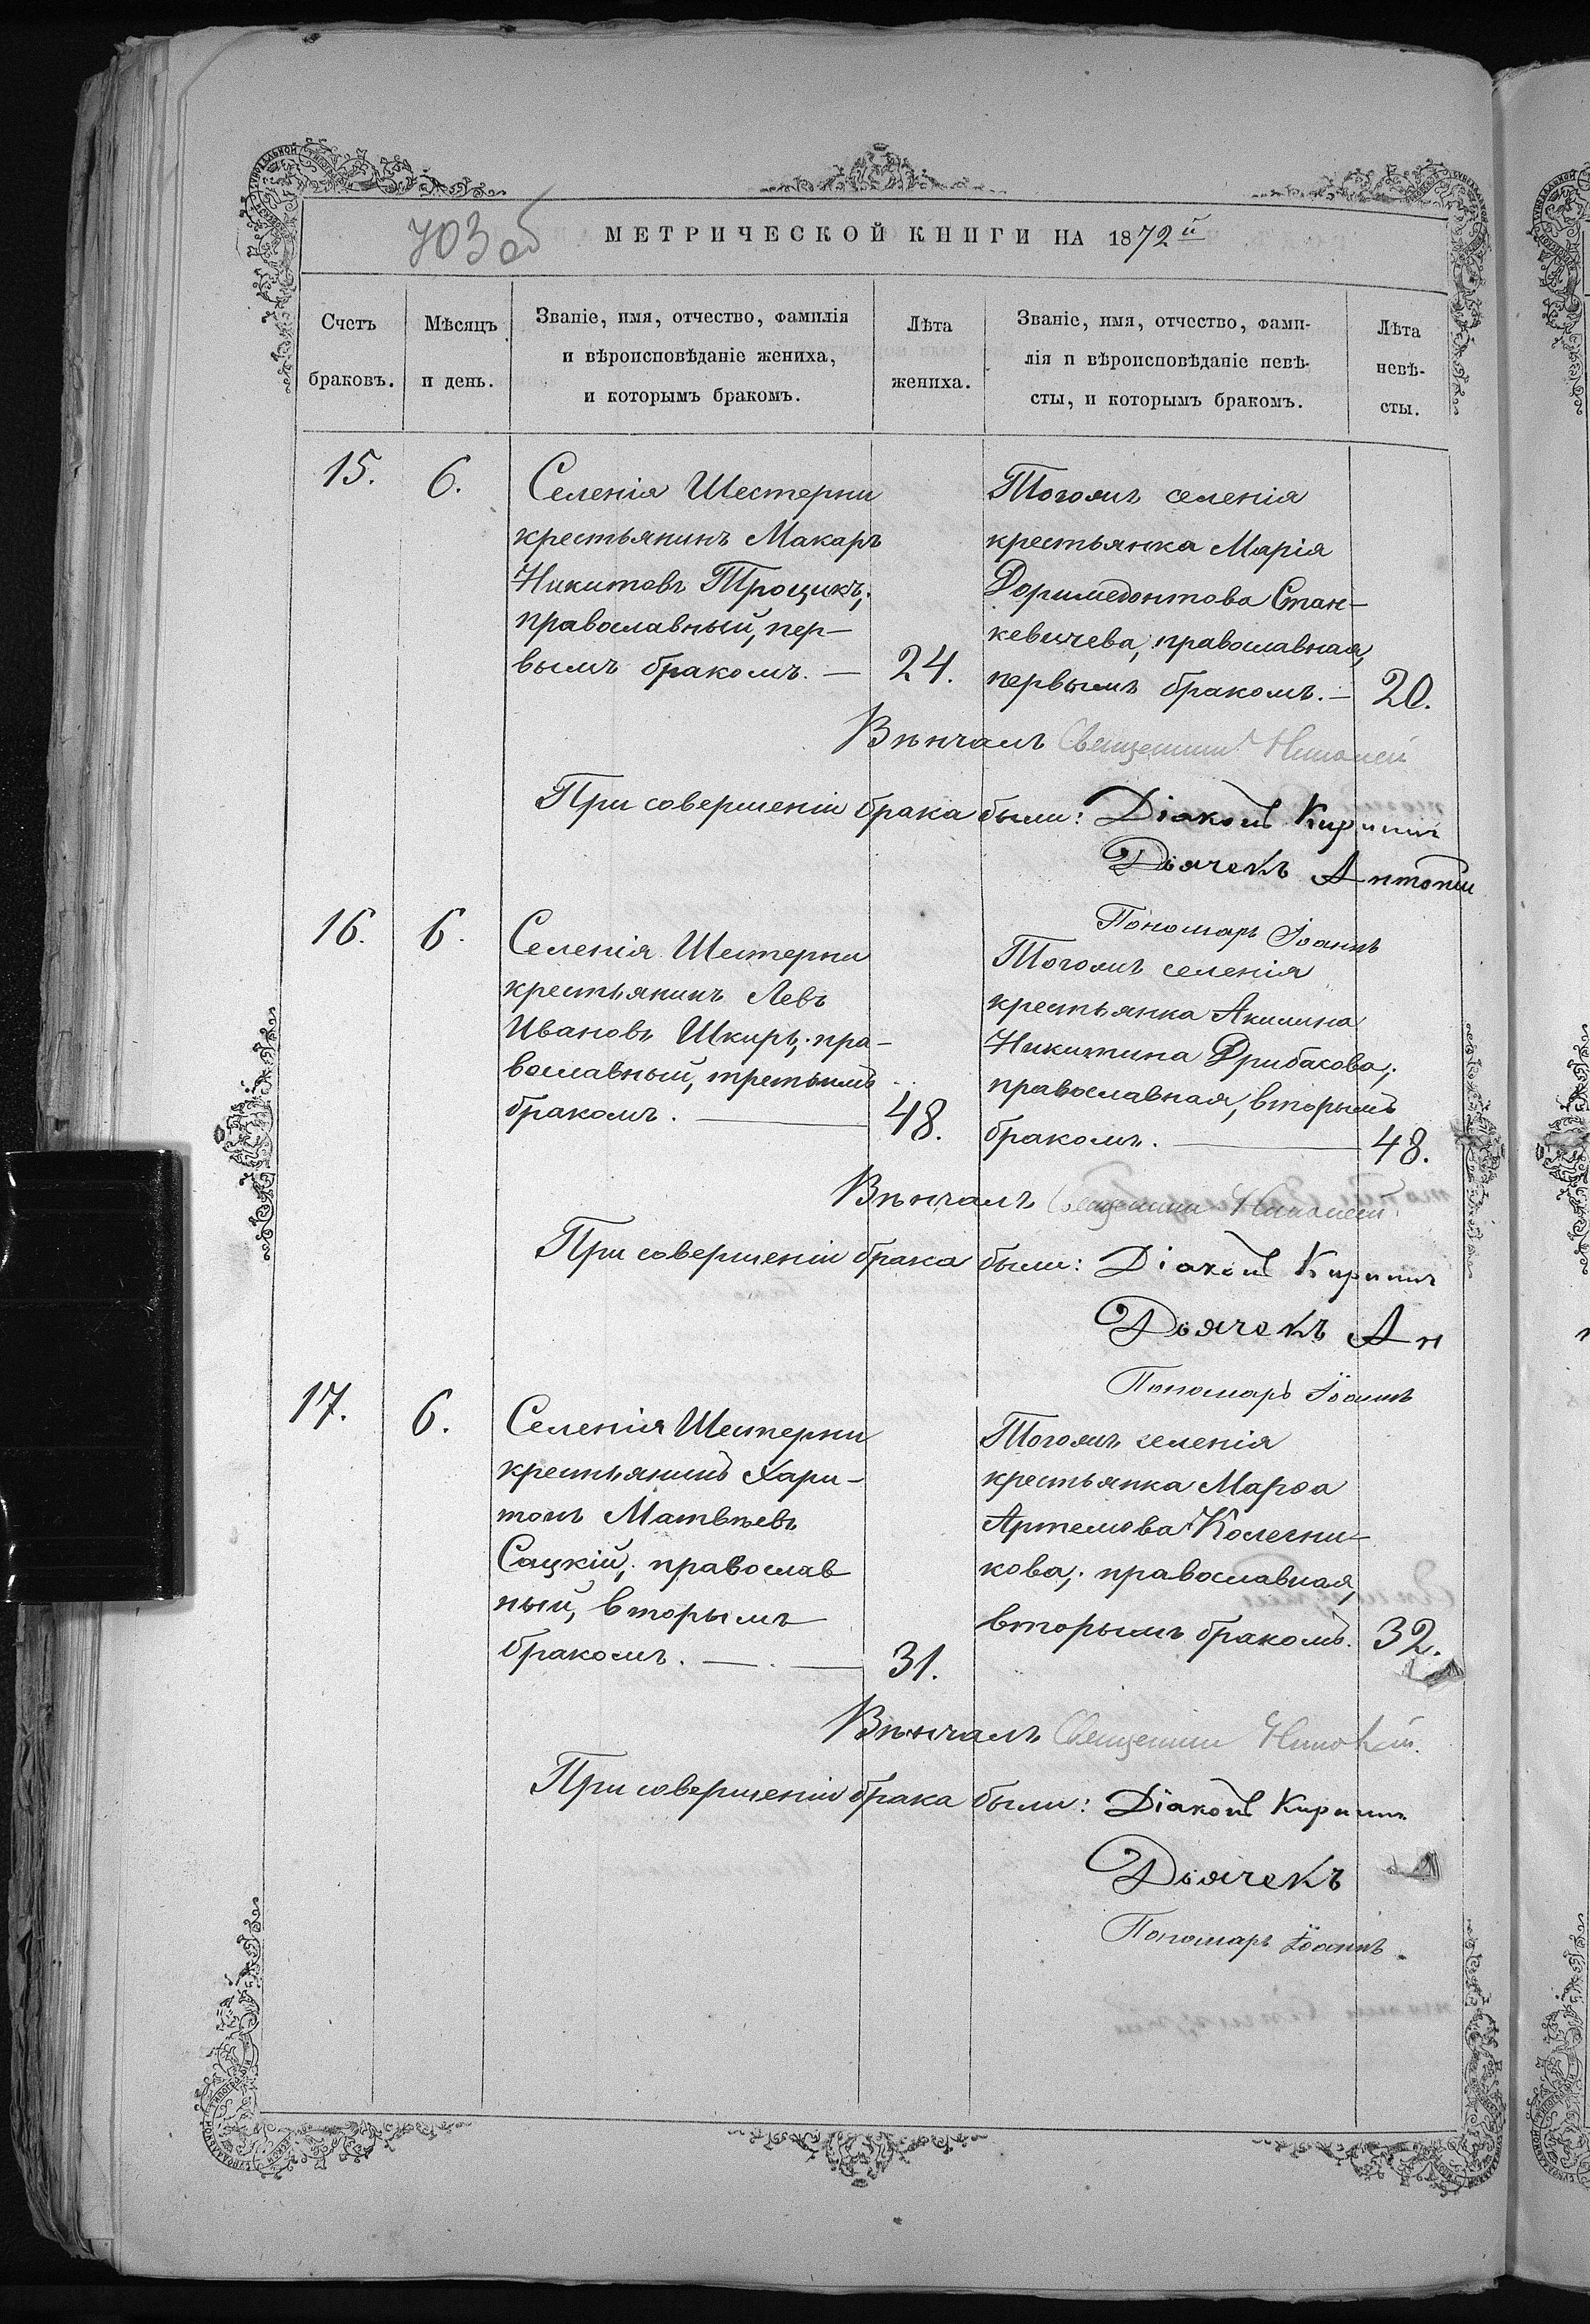 703 об
МЕТРИЧЕСКОЙ КНИГИ НА 1872й
Счетъ браковъ.
Мѣсяцъ и день.
Званіе, имя, отчество, фамилія
и вѣроисповѣданіе жениха,
и которымъ бракомъ.
Лѣта жениха.
Званіе, имя, отчество, фами-
лія и вѣроисповѣданіе невѣ-
сты, и которымъ бракомъ.
Лѣта невѣ-
сты.
15.
6.
Селенія Шестерни
крестьянинъ Макаръ
Никитовъ Троцикъ;
православный, пер-
вымъ бракомъ. — 24.
Тогожъ селенія
крестьянка Марія
Доримедонтова Стан-
кевичева, православная,
первымъ бракомъ. — 20.
Вѣнчалъ Священник Николай
При совершеніи брака были: Діаконъ Кирилъ
Дьячекъ Антоній
Пономарь Іоаннъ
16.
6.
Селенія Шестерни
крестьянинъ Левъ
Ивановъ Шкиръ, пра-
вославный, третьимъ
бракомъ. — 48.
Тогожъ селенія
крестьянка Акилина
Никитина Дрибасова;
православная, вторымъ
бракомъ. — 48.
Вѣнчалъ Священник Николай
При совершеніи брака были: Діаконъ Кирилъ
Дьячекъ Ан
Пономарь Іоаннъ
17.
6.
Селенія Шестерни
крестьянинъ Хари-
тонъ Матвѣевъ
Сацкій; православ
ный, вторымъ
бракомъ. — 31.
Тогожъ селенія
крестьянка Марѳа
Артемова Колесни-
кова; православная,
вторымъ бракомъ. 32.
Вѣнчалъ Священник Николай
При совершеніи брака были: Діаконъ Кирилъ
Дьячекъ
Пономарь Іоаннъ.